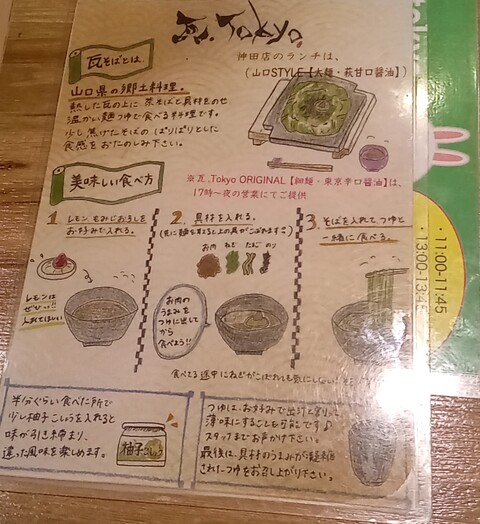 瓦.Tokyo.
神田店のランチは、
(山口STYLE【太麺・萩甘口醤油】)
瓦そばとは、
山口県の郷土料理。
熱した瓦の上に茶そばと具材をのせ
温かい麺つゆで食べる料理です。
少し焦げたそばのぱりぱりとした
食感をおたのしみ下さい。
※瓦.Tokyo ORIGINAL【細麺・東京辛口醤油】は、
17時〜夜の営業にてご提供
美味しい食べ方
1. レモン、もみじおろしを
お好みで入れる。
レモンは
ぜひっ!!
入れてほしい
2. 具材を入れる。
お肉 ねぎ たまご のり
お肉の
うまみを
つゆに出して
から
食べよう!!
3. そばを入れて、つゆと
一緒に食べる。
食べてる途中にねぎがこぼれても気にしない
半分ぐらい食べた所で
少し柚子こしょうを入れると
味が引き締まり、
違った風味を楽しめます。
柚子こしょう
つゆは、お好みで出汁と割って
薄味にすることも可能です♪
スタッフまでお声かけ下さい。
最後は、具材のうまみが凝縮
されたつゆをお召し上がり下さい。
11:00-11:45
13:00-13:45